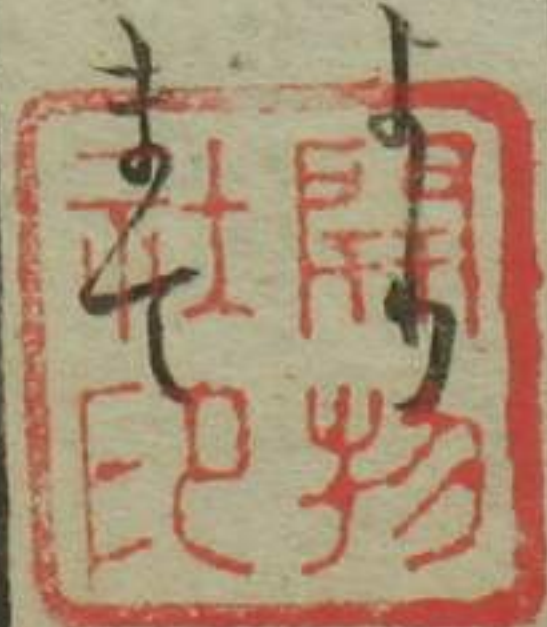 より
まて
開物
社印